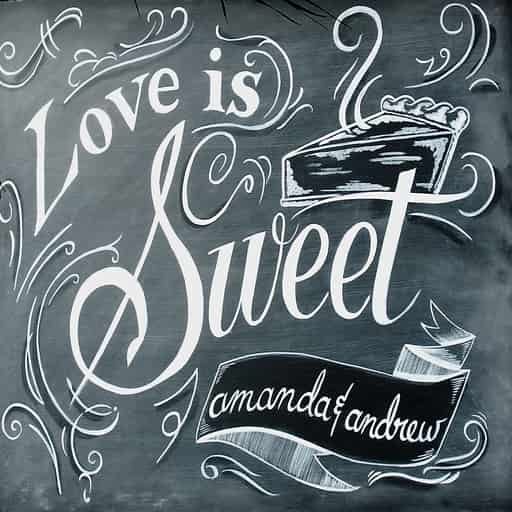 Love is
Sweet
amanda & andrew